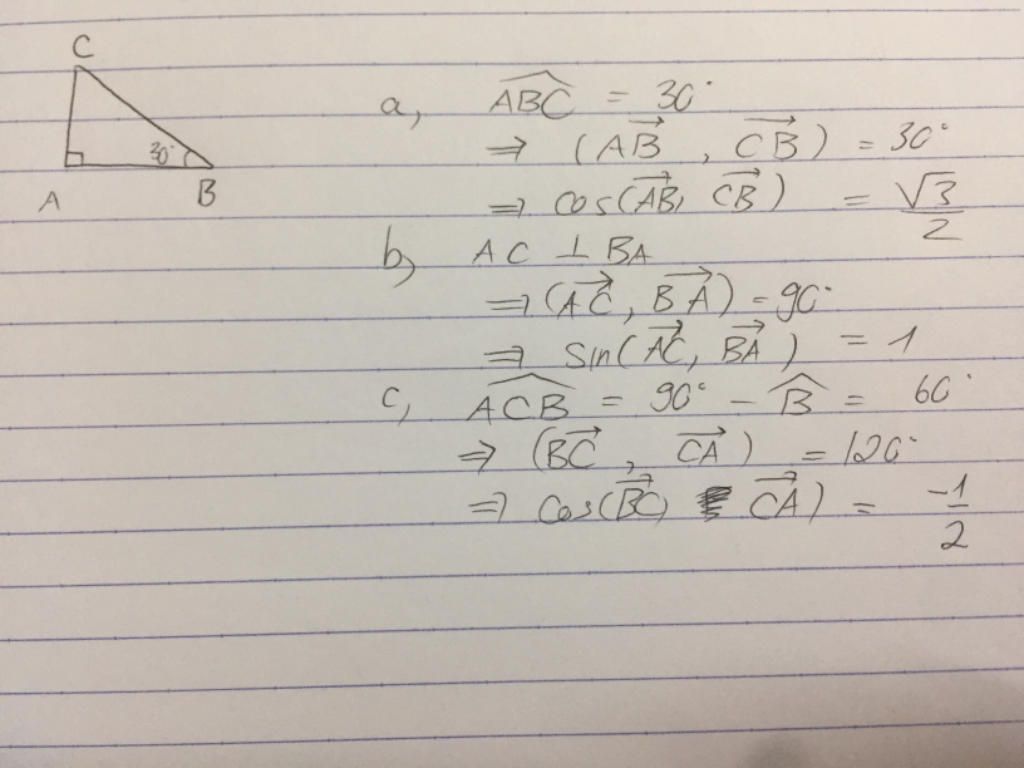 C
30°
A
B
a, $\widehat{ABC} = 30°$
$\Rightarrow (\overrightarrow{AB}, \overrightarrow{CB}) = 30°$
$\Rightarrow \cos(\overrightarrow{AB}, \overrightarrow{CB}) = \frac{\sqrt{3}}{2}$
b, $AC \perp BA$
$\Rightarrow (\overrightarrow{AC}, \overrightarrow{BA}) = 90°$
$\Rightarrow \sin(\overrightarrow{AC}, \overrightarrow{BA}) = 1$
c, $\widehat{ACB} = 90° - \widehat{B} = 60°$
$\Rightarrow (\overrightarrow{BC}, \overrightarrow{CA}) = 120°$
$\Rightarrow \cos(\overrightarrow{BC}) \overrightarrow{CA}) = \frac{-1}{2}$